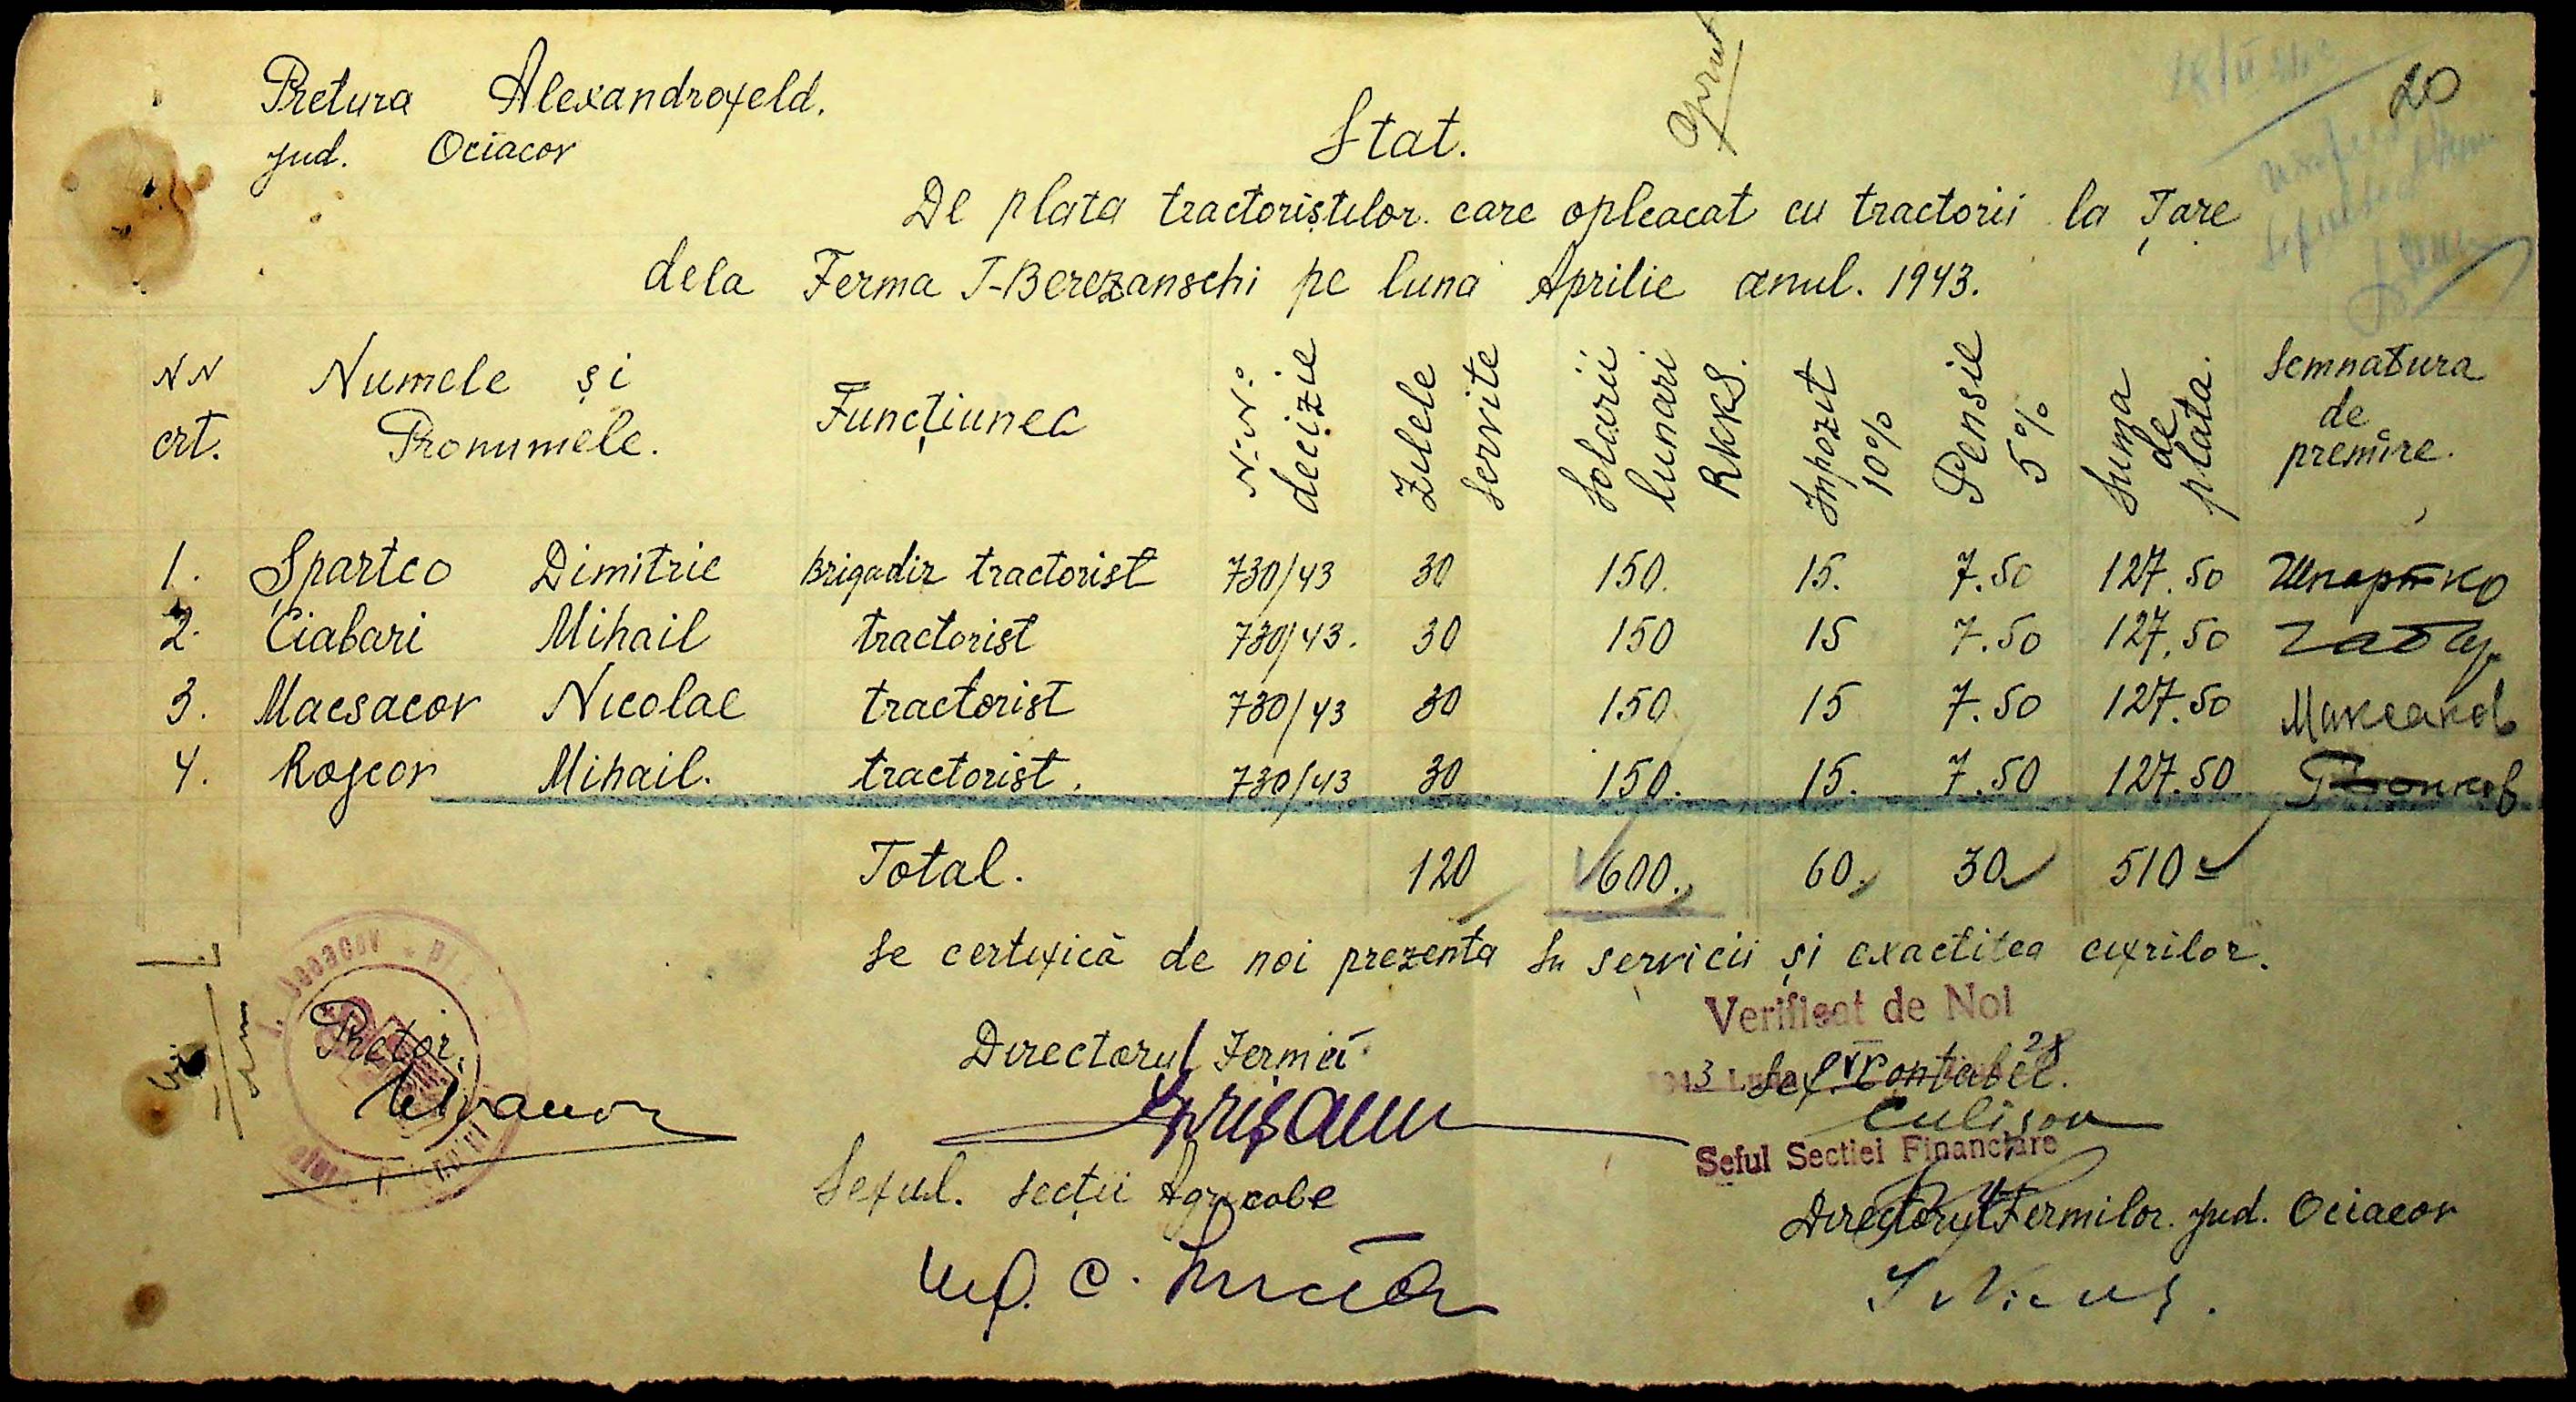 20
Pretura Alexandrofeld.
jud. Ociacov
Stat.
De plata tractoriștilor care opleacat cu tractorii la Țare
dela Ferma T-Berezanschi pe luna Aprilie anul. 1943.
NN crt. Numele și Pronumele. Funcțiunea N-N° decizie Zilele servite Solarii lunari RKKS. Impozit 10% Pensie 5% Suma de plata. Semnatura de premire.
1. Șpartco Dimitrie Brigadir tractorist 730/43 30 150. 15. 7.50 127.50 Шпартко
2. Ciabari Mihail tractorist 730/43. 30 150 15 7.50 127.50
3. Macsacov Nicolae tractorist 730/43 30 150 15 7.50 127.50 Максаков
4. Rogcov Mihail. tractorist. 730/43 30 150. 15. 7.50 127.50
Total. 120 600. 60. 30 510
Se certifică de noi prezenta în servicii și exactitea cifrilor.
Verificat de Noi
Pretor,
Directorul Fermii
Șef Contabil.
Seful Sectiei Financiare
Seful. secții Agricole
Directorul Fermilor. jud. Ociacov